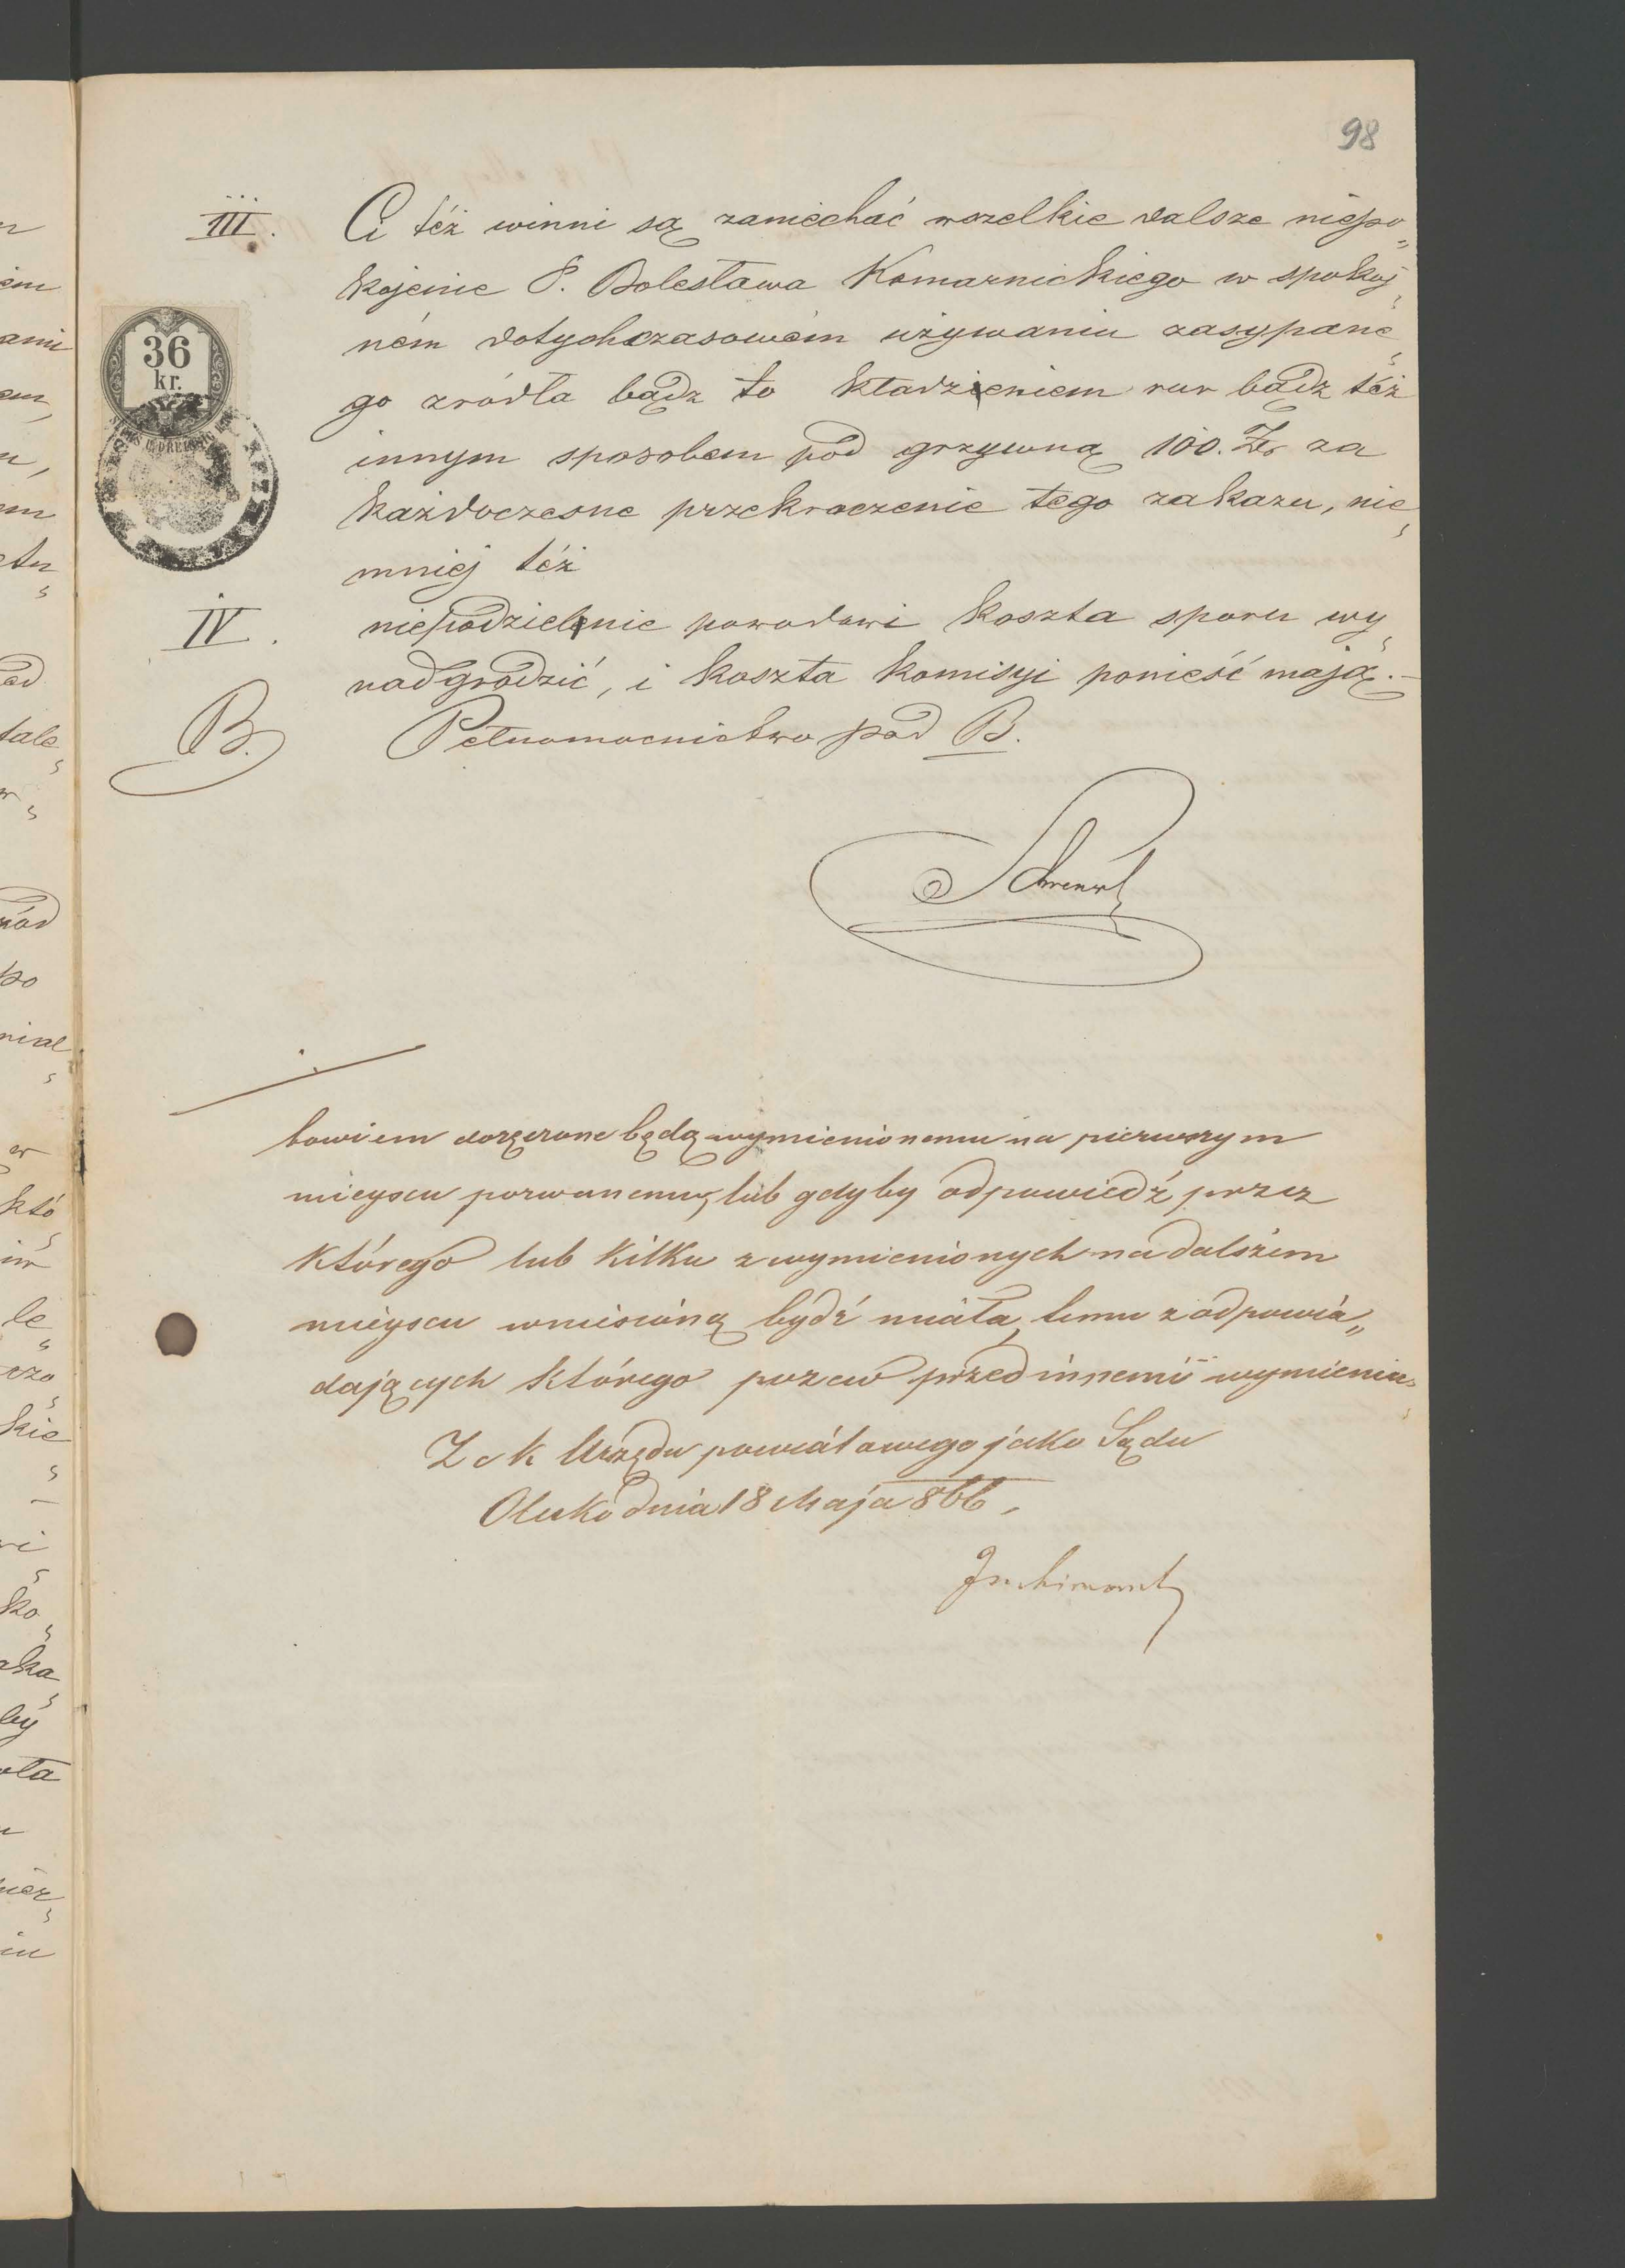 98
III. Ci téż winni są zaniechać wszelkie dalsze niepo„
kojenie P. Bolesława Komarnickiego w spokoj„
ném dotychczasowém używaniu zasypane„
go zródła bądz to kładzieniem rur bądz téż
innym sposobem pod grzywną 100. Zr za
każdoczesne przekroczenie tego zakazu, nie„
mniéj téż
IV. niepodzielnie powodowi koszta sporu wy„
nadgrodzić, i koszta komisyi ponieść mają.–
B. Pełnomocnictwo pod B.
36
kr.
bowiem doręczone będą wymienionemu na pierwszym
mieyscu pozwanemu, lub gdyby odpowiedź przez
którego lub kilku z wymienionych na dalszem
mieyscu wniesioną bydź miała, temu z odpowia„
dających którego pozew przed innemi wymienia„
Z c k Urzędu powiatowego jako Sądu
dnia 18 Maja 866,